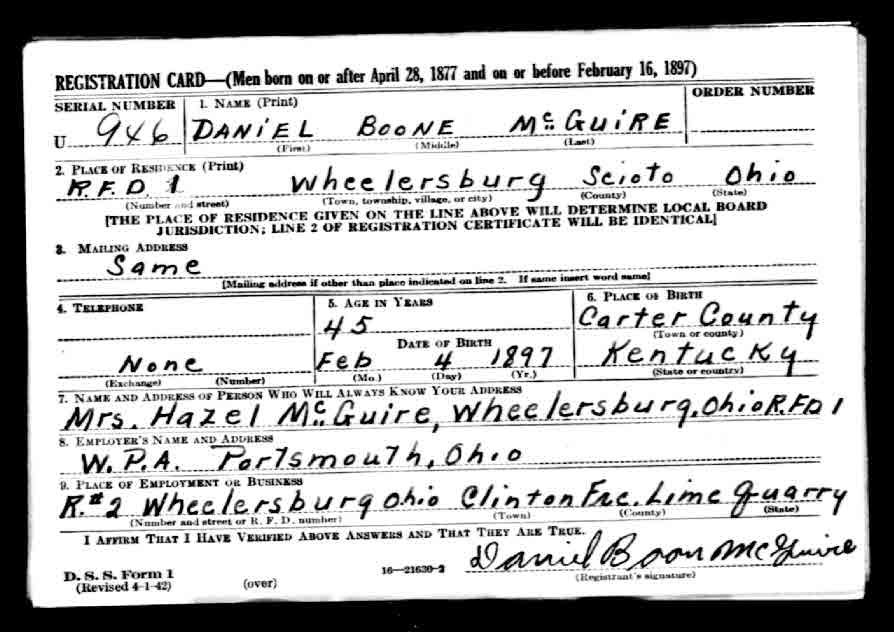 REGISTRATION CARD—(Men born on or after April 28, 1877 and on or before February 16, 1897)
SERIAL NUMBER 1. NAME (Print) ORDER NUMBER
U 946 DANIEL BOONE McGUIRE
(First) (Middle) (Last)
2. PLACE OF RESIDENCE (Print)
R.F.D. 1 Wheelersburg Scioto Ohio
(Number and street) (Town, township, village, or city) (County) (State)
[THE PLACE OF RESIDENCE GIVEN ON THE LINE ABOVE WILL DETERMINE LOCAL BOARD
JURISDICTION; LINE 2 OF REGISTRATION CERTIFICATE WILL BE IDENTICAL]
3. MAILING ADDRESS
Same
[Mailing address if other than place indicated on line 2. If same insert word same]
4. TELEPHONE 5. AGE IN YEARS 6. PLACE OF BIRTH
45 Carter County
DATE OF BIRTH (Town or county)
None Feb 4 1897 Kentucky
(Exchange) (Number) (Mo.) (Day) (Yr.) (State or country)
7. NAME AND ADDRESS OF PERSON WHO WILL ALWAYS KNOW YOUR ADDRESS
Mrs. Hazel McGuire, Wheelersburg, Ohio R.F.D 1
8. EMPLOYER'S NAME AND ADDRESS
W.P.A. Portsmouth, Ohio
9. PLACE OF EMPLOYMENT OR BUSINESS
R.#2 Wheelersburg Ohio Clinton Frc. Lime Quarry
(Number and street or R. F. D. number) (Town) (County) (State)
I AFFIRM THAT I HAVE VERIFIED ABOVE ANSWERS AND THAT THEY ARE TRUE.
Daniel Boon McGuire
D. S. S. Form 1 16—21630-2 (Registrant's signature)
(Revised 4-1-42) (over)